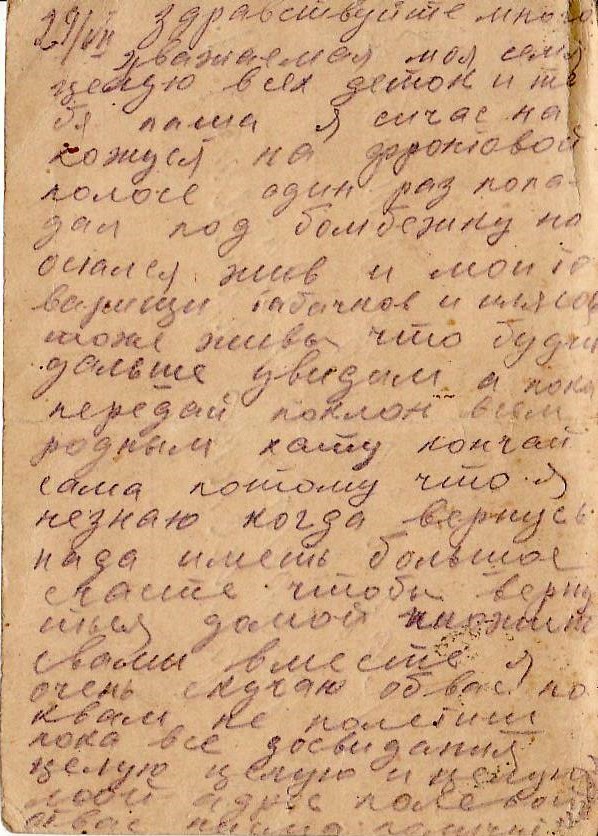 29/VII здравствуйте много
уважаемая моя семя
целую всех деток и те
бя паша я сичас на
хожуся на фронтовой
полосе один раз попа-
дал под бомбежку но
остался жив и мои то
варищи табачков и
тоже живы что будит
дальше увидам а пока
передай поклон всем
родным хату кончай
сама потому что я
незнаю когда вернусь
нада иметь большое
счасте чтобы верну
ться домой
свамы вместе я
очень скучаю обвас но
квам не полетиш
пока все досвидания
целую целую и целую
мой адрес полевой
отвас писма